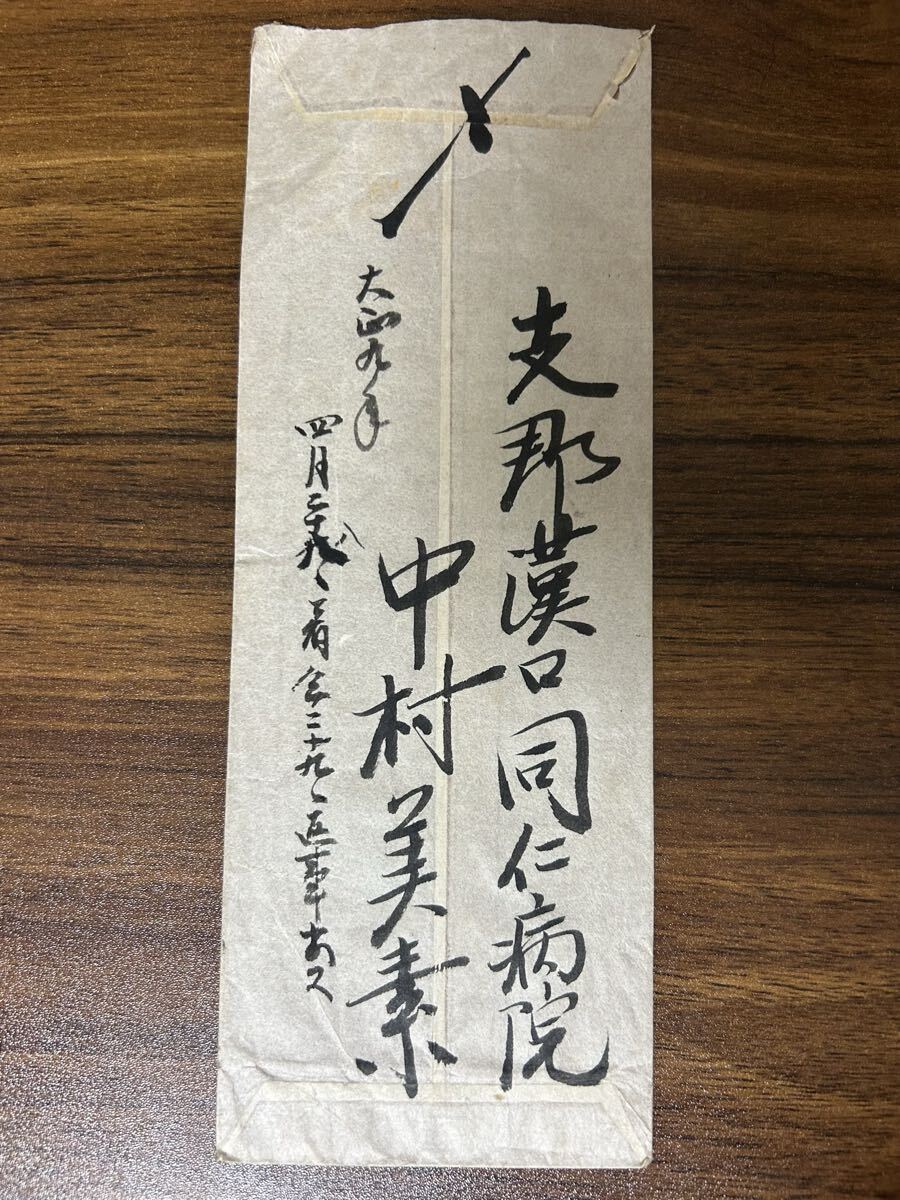 〆
支那漢口同仁病院
中村美素
大正九年
四月二十八日着 仝二十九日返事出ス